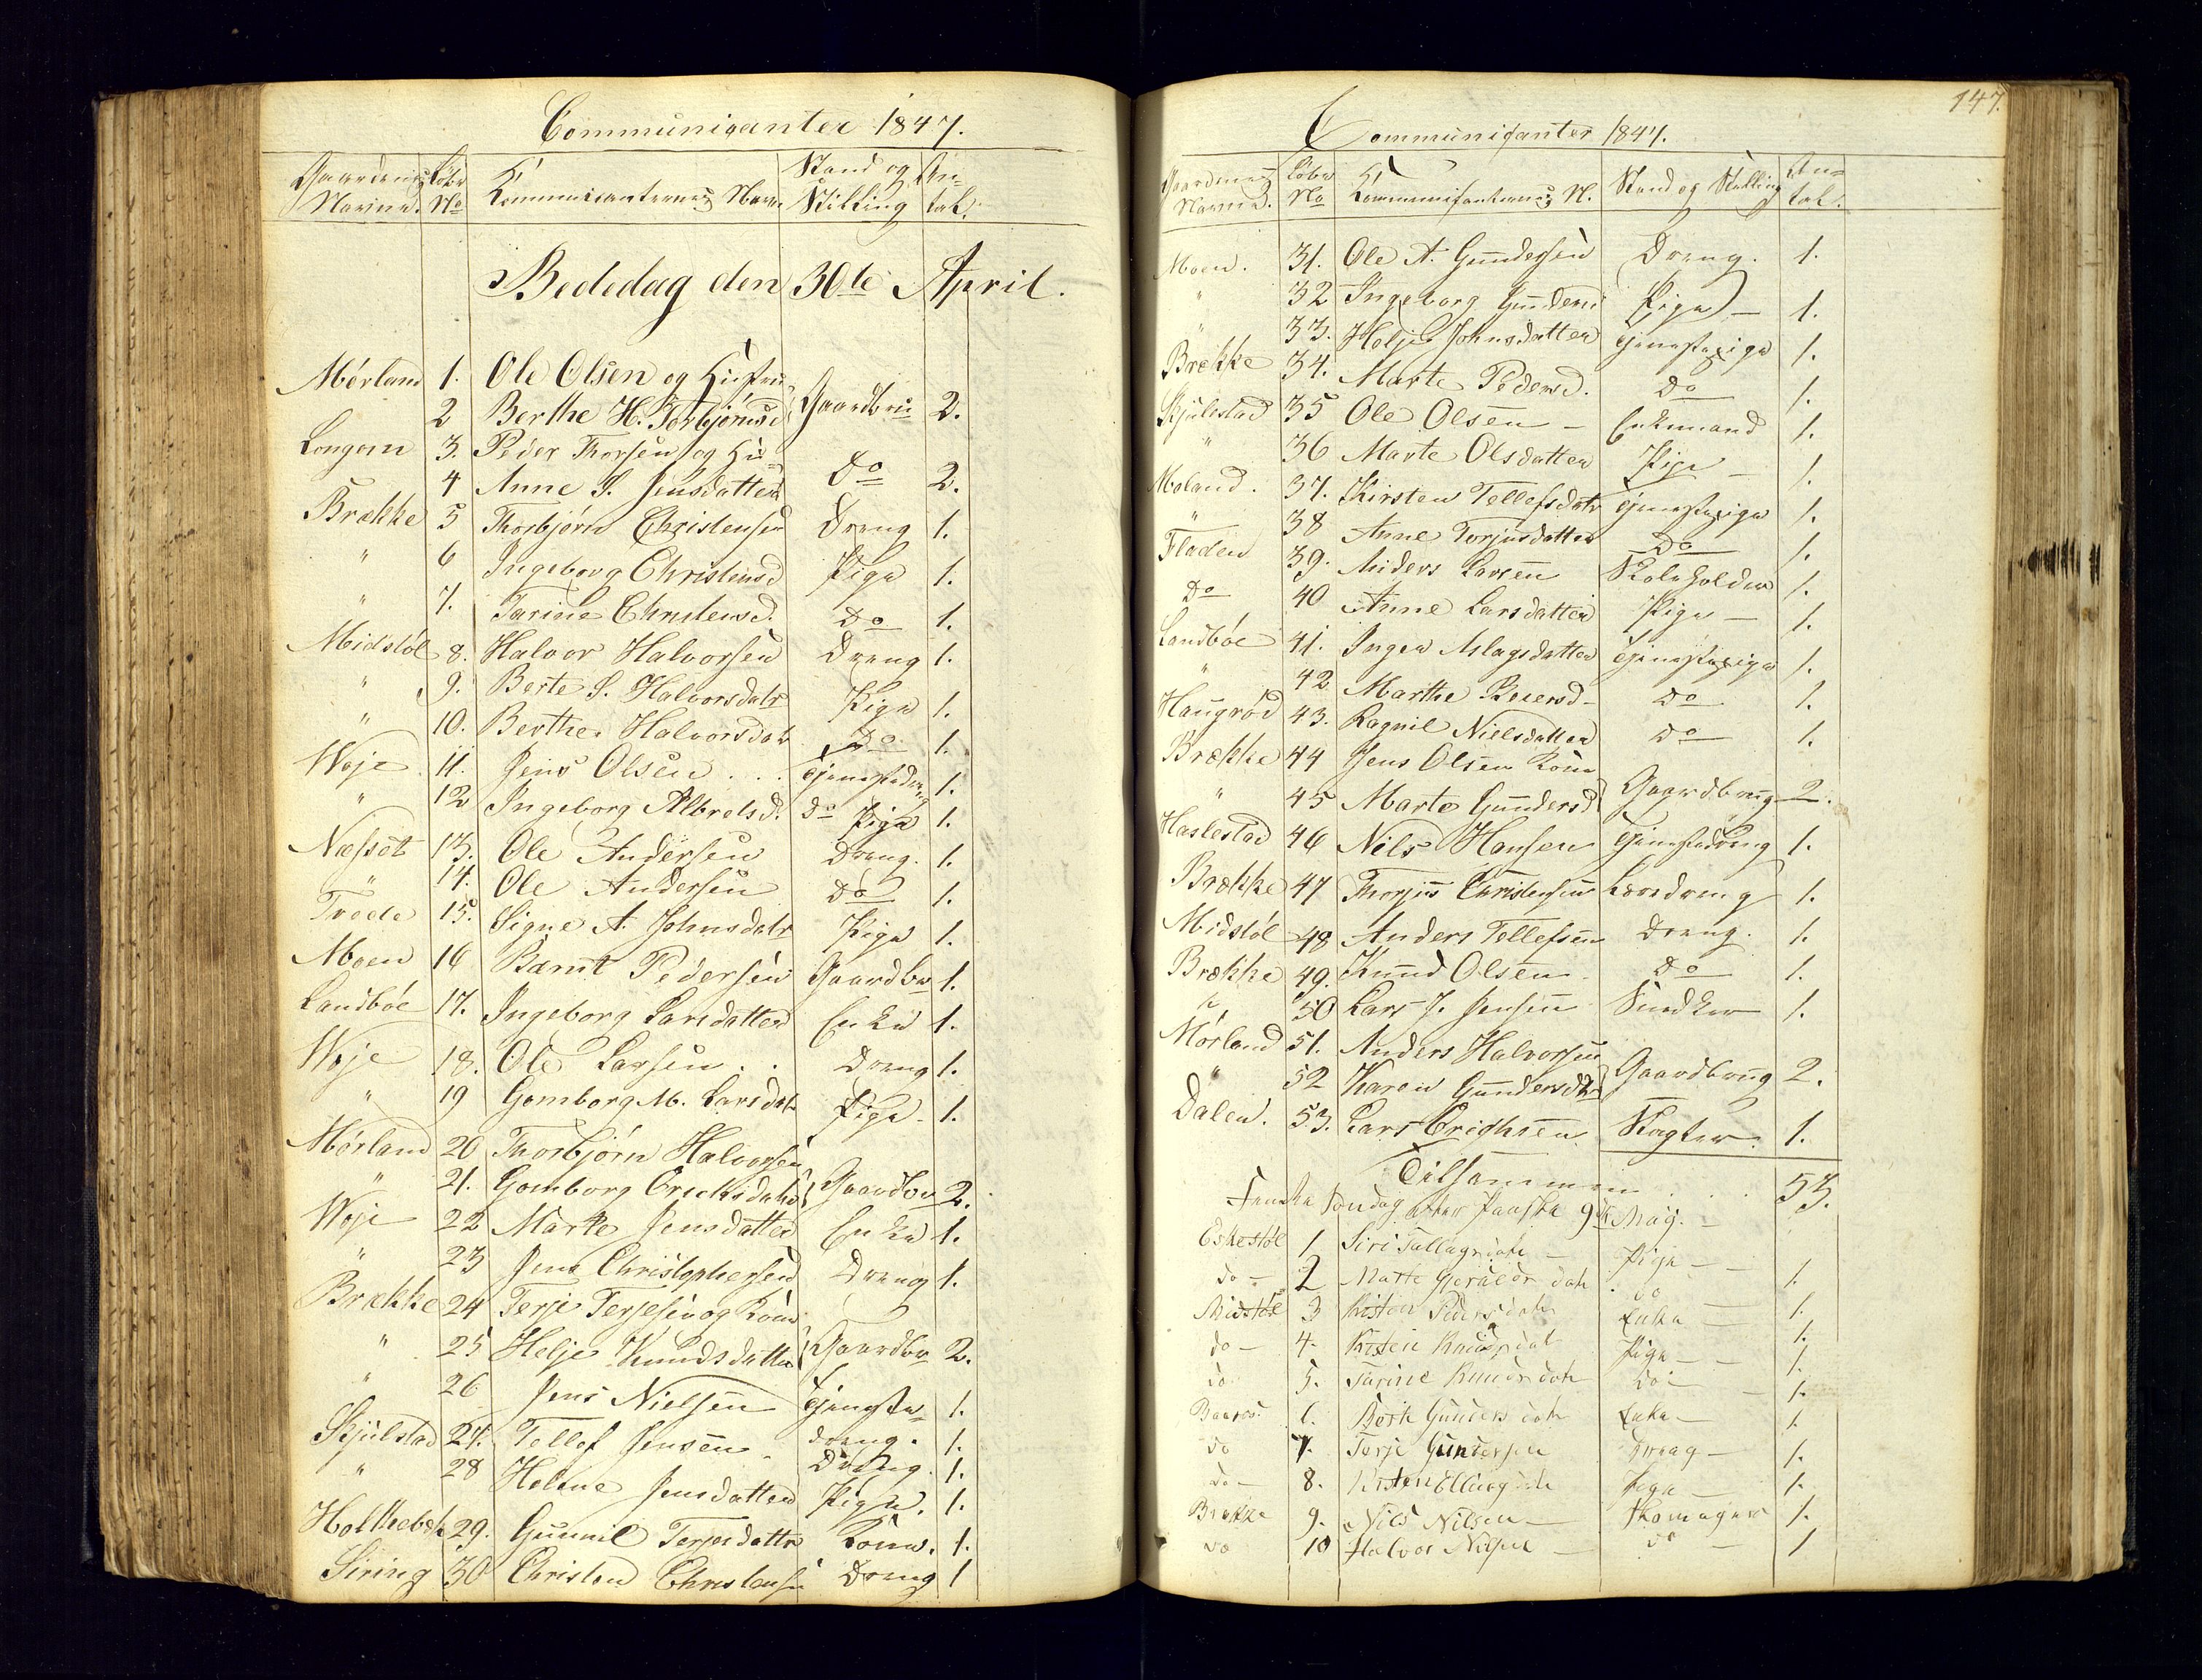 Communicanter 1847.
Gaardenes Navne. Løbe No Kommunicanternes Navne Stand og Stilling Antal.
Bededag den 30te April.
Mørland 1. Ole Olsen og Hustru
2 Berthe H. Torbjørnsd Gaardbru 2.
Longom 3. Peder Thorsen og Hu=
4 Anne S. Jensdatter Do 2.
Brække 5 Thorbjørn Christensen Dreng 1.
" 6 Ingeborg Christensd Pige 1.
" 7. Tarine Christensd. Do 1.
Midstøl 8. Halvor Halvorsen Dreng 1.
" 9. Berte S. Halvorsdatr Pige 1.
" 10. Berthe Halvorsdatr Do 1.
Woje 11. Jens Olsen . . . Tjenestedreng 1.
" 12 Ingeborg Albretsd. do Pige 1.
Næsset 13. Ole Andersen Dreng. 1.
" 14. Ole Andersen Do 1.
Trede 15. Signe A. Johnsdatr Pige 1.
Moen 16 Bærnt Pedersen Gaardbr 1.
Landbøe 17. Ingeborg Larsdatter Enke 1.
Woje 18. Ole Larsen . . Dreng 1.
" 19 Gomborg M. Larsdatr Pige. 1.
Mørland 20 Thorbjørn Halvorsen
" 21. Gomborg Ericksdatr Gaardbr 2.
Woje 22 Marte Jensdatter Enke 1.
" 23 Jens Christophersen Dreng 1.
Brække 24 Terje Terjesen og Kone
" 25 Helje Knudsdatter Gaardbr 2.
" 26 Jens Nielsen Tjeneste= 1.
Skjulstad 27. Tellef Jensen dreng. Dreng. 1.
" 28 Helene Jensdatter Pige. 1.
Holthebæk 29. Gunnil Terjesdattr Kone. 1.
Siring 30 Christen Christensen Dreng 1
147.
Communicanter 1847.
Gaardenes Navne. Løbe No Kommunicanternes N. Stand og Stilling Antal.
Moen. 31. Ole A. Gundersen Dreng. 1.
" 32 Ingeborg Gunders Pige — 1.
" 33. Helje Johnsdatter Tjenestepige 1.
Brække 34. Marte Pedersd. Do 1.
Skjulestad 35 Ole Olsen — Enkemand 1.
" 36 Marte Olsdatter Pige — 1.
Moland. 37. Kirsten Tellefsdatr Tjenestepige 1.
" 38 Anne Torjusdatter Do 1.
Fladen 39. Anders Larsen Skoleholder 1.
Do 40 Anne Larsdatter Pige — 1.
Landbøe 41. Inger Aslagsdatter Tjenestepige 1.
" 42 Marthe Reiersd — Do 1.
Haugrød 43. Ragnil Nielsdatter Do 1.
Brække 44 Jens Olsen Kone
" 45 Marte Gundersd Gaardbrug 2.
Haslestad 46 Nils Hansen Tjenestedreng 1.
Brække 47 Thorjus Christensen Læredreng 1.
Midstøl 48 Anders Tellefsen Dreng. 1.
Brække 49. Knud Olsen Do 1.
" 50 Lars J. Jensen Snedker 1.
Mørland 51. Anders Halvorsen
" 52 Karen Gundersdtr Gaardbrug 2.
Dalen. 53. Lars Erichsen Slagter. 1.
Tilsammen . . . 53.
Femte Søndag efter Paaske 9de May. —
Eskestøl 1 Siri Tallagsdatr — Pige — —
do — 2 Marte Gjeruldsdatr do 1.
Midstøl 3 Kisten Pedersdatr Enke — 1.
do — 4. Kisten Knudsdat Pige — — 1.
do 5. Tarine Knudsdatr do — 1.
Baaros 6. Berte Gundersdatr Enke — 1.
do 7. Terje Gundersen Dreng — 1.
do — 8. Kisten Ellingsdatr Pige — 1.
Brække 9. Nils Nilsen — Skomager 1.
do 10 Halvor Nilsen — do — 1